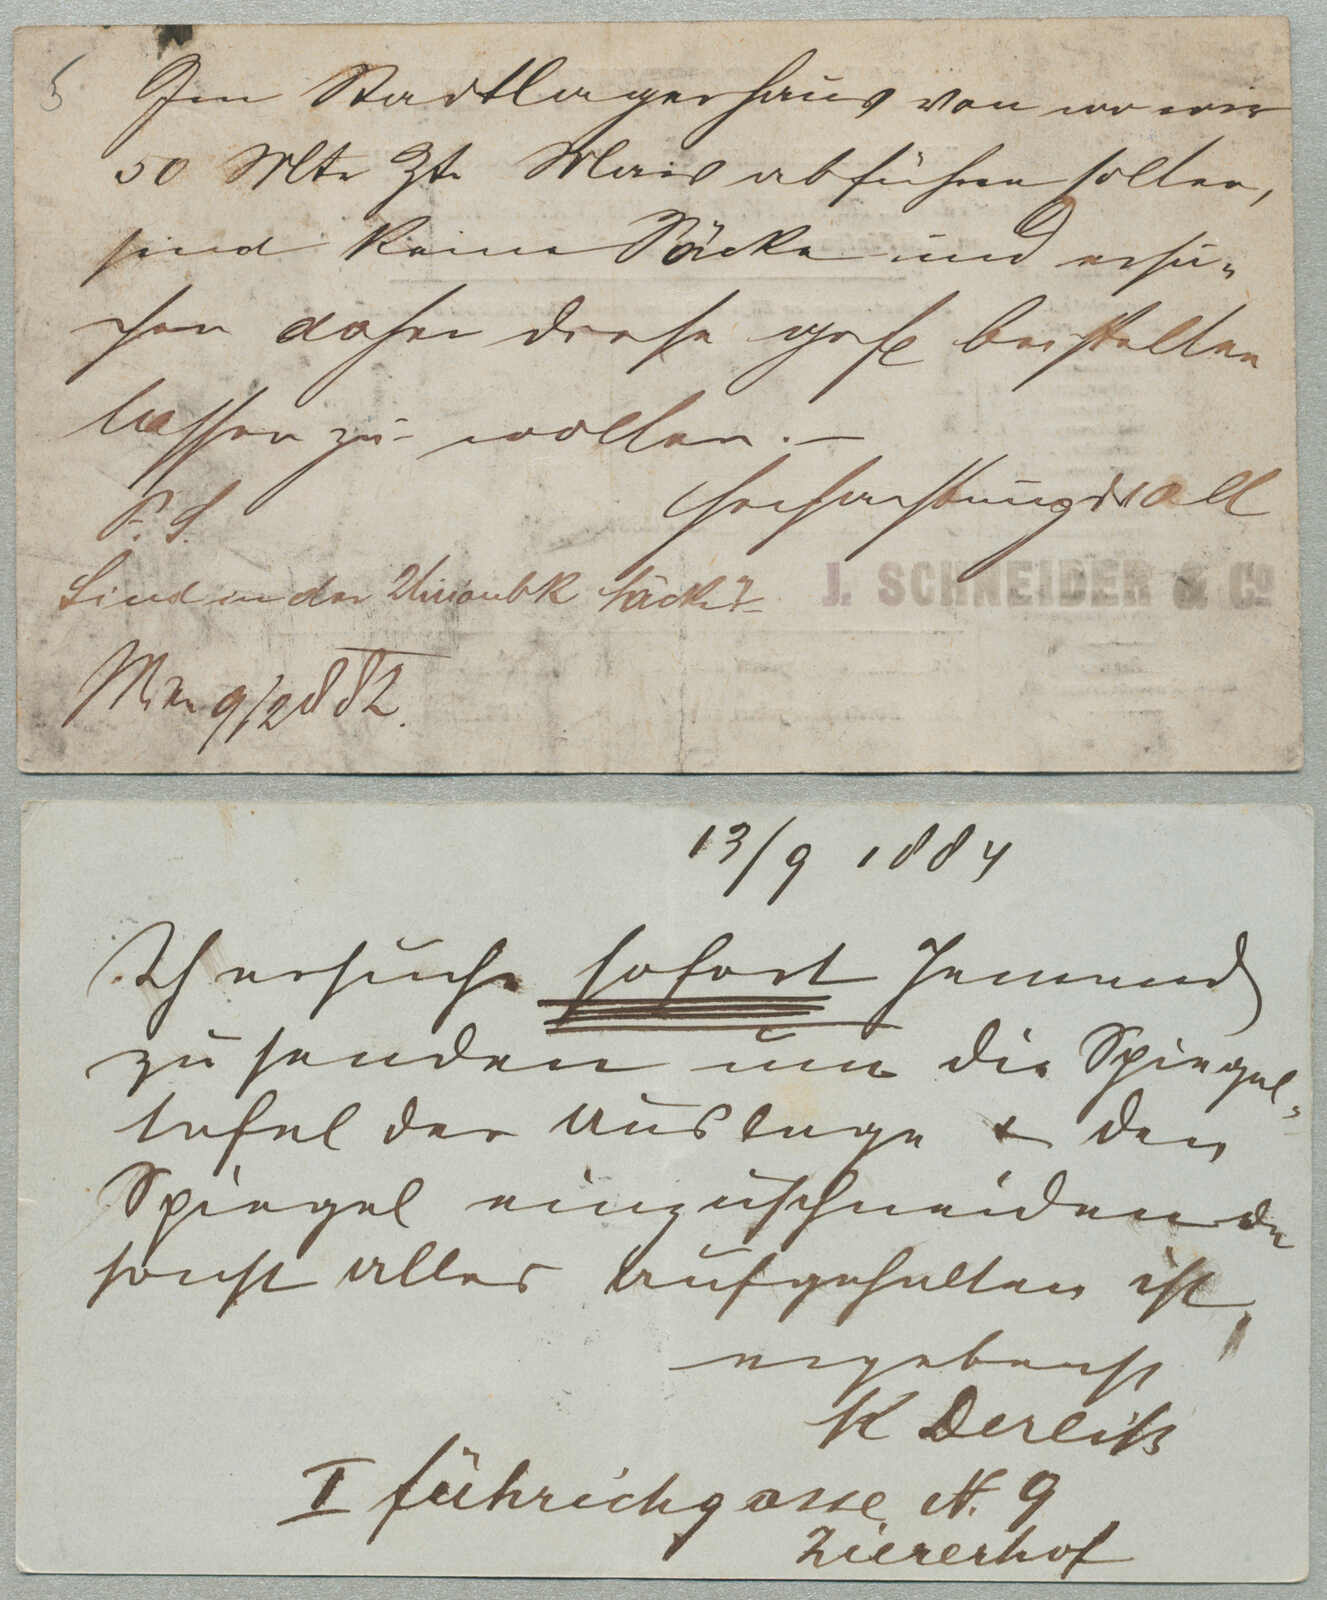 5
Im Stadtlagerhaus von wo wir
50 Mtr Ztr Mais abführen sollen,
sind keine Säcke und ersu-
chen daher diese gefl beistellen
lassen zu wollen. —
Hochachtungsvoll
P. S.
Sind in der Unionbk Säcke?
J. SCHNEIDER & Co
Wien 9/2 882.
13/9 1884
Ich ersuche sofort Jemand
zu senden um die Spiegel-
tafel der Auslage & den
Spiegel einzuschneiden da
sonst alles aufgehalten ist,
ergebenst
K Derliß
I führichgasse N. 9
Ziererhof